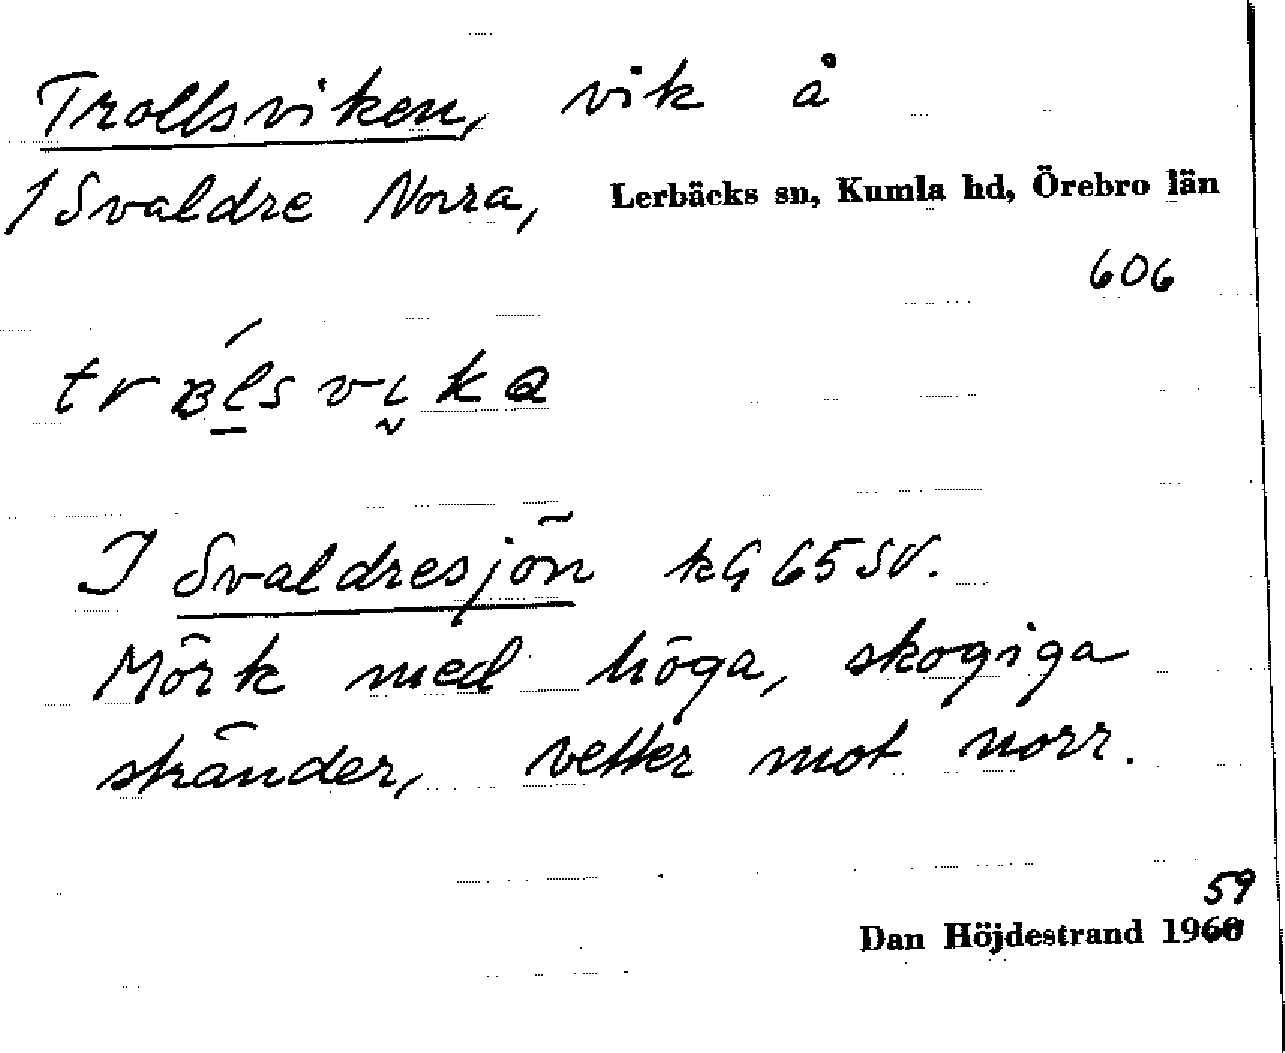 Trollsviken, vik å
/Svaldre Norra, Lerbäcks sn, Kumla hd, Örebro län
606
I Svaldresjön kG 65 SV.
Mörk med höga, skogiga
stränder, vetter mot norr.
59
Dan Höjdestrand 1960